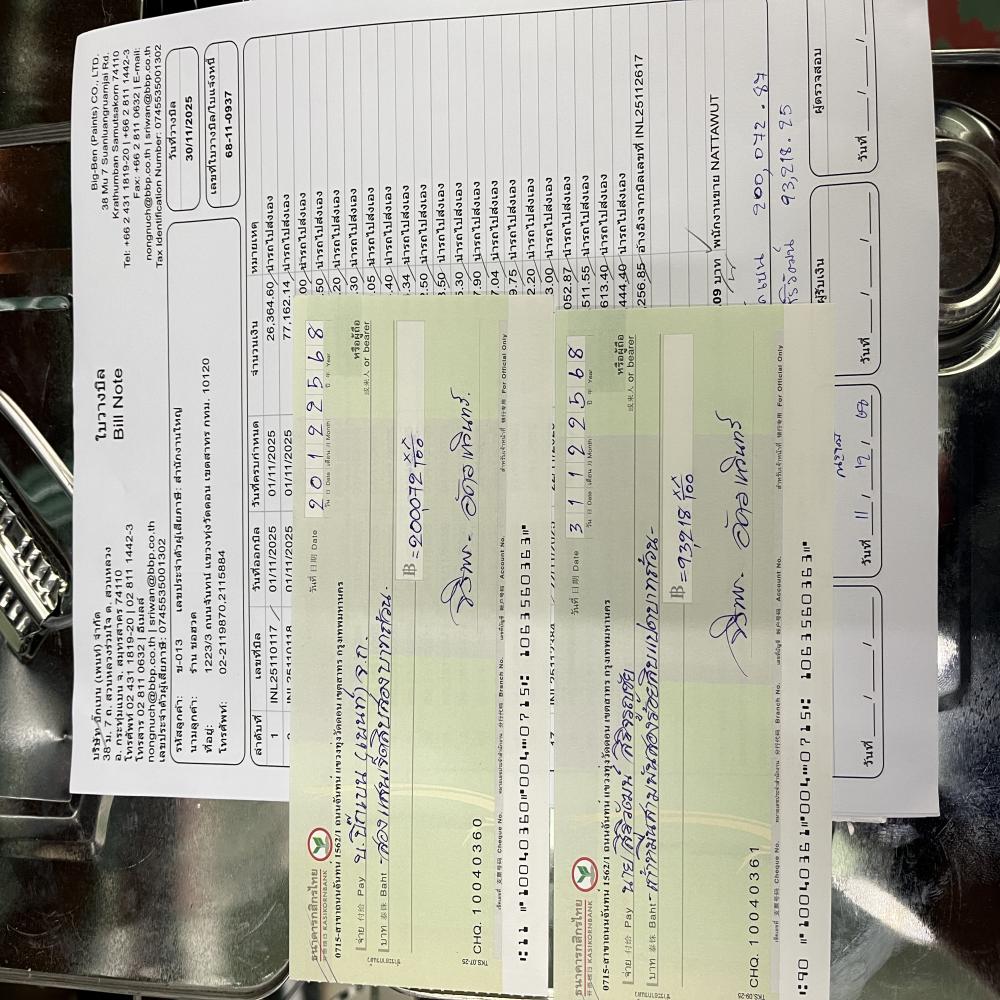 บริษัท บิ๊กเบน (เพนท์) จำกัด
38 ม. 7 ถ. สวนหลวงร่วมใจ ต. สวนหลวง
อ. กระทุ่มแบน จ. สมุทรสาคร 74110
โทรศัพท์ 02 431 1819-20 | 02 811 1442-3
โทรสาร 02 811 0632 | อีเมลล์
nongnuch@bbp.co.th | sriwan@bbp.co.th
เลขประจำตัวผู้เสียภาษี: 0745535001302
ใบวางบิล
Bill Note
Big-Ben (Paints) CO., LTD.
38 Mu 7 Suanluangruamjai Rd.
Krathumban Samutsakorn 74110
Tel: +66 2 431 1819-20 | +66 2 811 1442-3
Fax: +66 2 811 0632 | E-mail:
nongnuch@bbp.co.th | sriwan@bbp.co.th
Tax Identification Number: 0745535001302
รหัสลูกค้า: ข-013 เลขประจำตัวผู้เสียภาษี: สำนักงานใหญ่
นามลูกค้า: ร้าน ย่งฮวด
ที่อยู่: 1223/3 ถนนจันทน์ แขวงทุ่งวัดดอน เขตสาทร กทม. 10120
โทรศัพท์: 02-2119870,2115884
วันที่วางบิล
30/11/2025
เลขที่ใบวางบิล/ใบแจ้งหนี้
68-11-0937
ลำดับที่ เลขที่บิล วันที่ออกบิล วันที่ครบกำหนด จำนวนเงิน หมายเหตุ
1 INL25110117 01/11/2025 01/11/2025 26,364.60 นำรถไปส่งเอง
INL25110118 01/11/2025 01/11/2025 77,162.14 นำรถไปส่งเอง
.00 นำรถไปส่งเอง
.50 นำรถไปส่งเอง
.20 นำรถไปส่งเอง
.30 นำรถไปส่งเอง
.05 นำรถไปส่งเอง
.40 นำรถไปส่งเอง
.34 นำรถไปส่งเอง
2.50 นำรถไปส่งเอง
3.50 นำรถไปส่งเอง
5.30 นำรถไปส่งเอง
7.90 นำรถไปส่งเอง
7.04 นำรถไปส่งเอง
9.75 นำรถไปส่งเอง
2.20 นำรถไปส่งเอง
3.00 นำรถไปส่งเอง
052.87 นำรถไปส่งเอง
511.55 นำรถไปส่งเอง
613.40 นำรถไปส่งเอง
444.40 นำรถไปส่งเอง
256.85 อ้างอิงจากบิลเลขที่ INL25112617
.09 บาท พนักงานขาย NATTAWUT
200,072.87
93,218.25
ผู้รับเงิน
ผู้ตรวจสอบ
วันที่ / /
วันที่ 11 / 12 / 68
วันที่ / /
วันที่ / /
ธนาคารกสิกรไทย
开泰银行 KASIKORNBANK
0715-สาขาถนนจันทน์ 1562/1 ถนนจันทน์ แขวงทุ่งวัดดอน เขตสาทร กรุงเทพมหานคร
วันที่ 日期 Date 20122568
วัน 日 Date เดือน 月 Month ปี 年 Year
จ่าย 付给 Pay บ.บิ๊กเบน (เพนท์) จ.ก.
หรือผู้ถือ
或来人 or bearer
บาท 泰铢 Baht -สองแสนเจ็ดสิบสองบาทถ้วน-
฿ =200,072 xx/100
CHQ. 10040360
เช็คเลขที่ 支票号码 Cheque No. รหัสธนาคาร/สำนักงาน 分行代码 Branch No. เลขที่บัญชี 帐户号码 Account No. สำหรับเจ้าหน้าที่ 银行专用 For Official Only
TKS.07-25
⑆11 ⑈10040360⑈004⑉0715⑆ 1063560363⑈
ธนาคารกสิกรไทย
开泰银行 KASIKORNBANK
0715-สาขาถนนจันทน์ 1562/1 ถนนจันทน์ แขวงทุ่งวัดดอน เขตสาทร กรุงเทพมหานคร
วันที่ 日期 Date 31122568
วัน 日 Date เดือน 月 Month ปี 年 Year
จ่าย 付给 Pay นาย
หรือผู้ถือ
或来人 or bearer
บาท 泰铢 Baht -เก้าหมื่นสามพันสองร้อยสิบแปดบาทถ้วน-
฿ =93,218 xx/100
CHQ. 10040361
เช็คเลขที่ 支票号码 Cheque No. รหัสธนาคาร/สำนักงาน 分行代码 Branch No. เลขที่บัญชี 帐户号码 Account No. สำหรับเจ้าหน้าที่ 银行专用 For Official Only
TKS.09-25
⑆90 ⑈10040361⑈004⑉0715⑆ 1063560363⑈